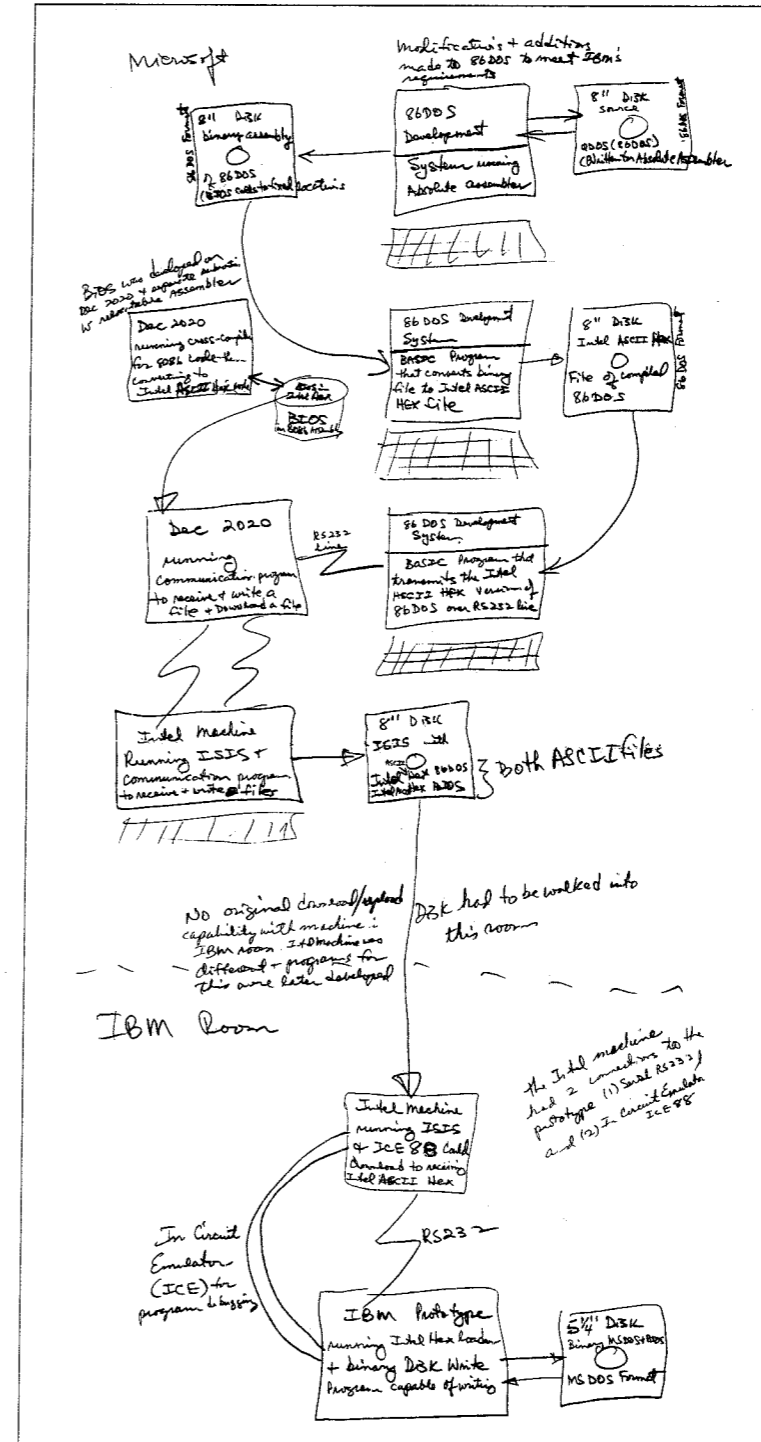 Microsoft
modifications + additions
made to 86DOS to meet IBM's
requirements
8" Disk
binary assembly
of 86DOS
(BIOS calls to fixed locations
86 DOS Format
86DOS
Development
System running
Absolute assembler
8" Disk
source
QDOS (86DOS)
(Written for Absolute Assembler
86 DOS Format
BIOS was developed on
Dec 2020 + separate
w relocatable Assembler
Dec 2020
running cross-compiler
for 8086 code
converting to
Intel ASCII Hex
BIOS in
Intel Hex
BIOS
in 8086 Assembly
86 DOS Development
System
BASIC Program
that converts binary
file to Intel ASCII
HEX file
8" Disk
Intel ASCII Hex
File of compiled
86DOS
86 DOS Format
Dec 2020
running
communication program
to receive + write a
file + Download a file
RS232
line
86 DOS Development
System
BASIC Program that
transmits the Intel
ASCII HEX version of
86DOS over RS232 line
Intel Machine
Running ISIS +
communication program
to receive + write files
8" Disk
ISIS with
ASCII
Intel Hex 86DOS
Intel Hex BIOS
Both ASCII files
No original download/upload
capability with machine in
IBM room. Intel Machine was
different + programs for
this were later developed
Disk had to be walked into
this room
IBM Room
the Intel machine
had 2 connections to the
prototype (1) Serial RS232
and (2) In Circuit Emulator
ICE 88
Intel Machine
running ISIS
+ ICE 88 Could
download to receiving
Intel ASCII Hex
In Circuit
Emulator
(ICE) for
program debugging
RS232
IBM Prototype
running Intel Hex loader
+ binary Disk Write
Program capable of writing
5¼" Disk
Binary MSDOS+BIOS
MS DOS Format